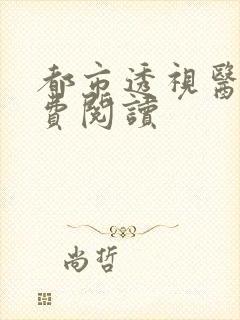 都市透視醫
費閱讀
尚哲